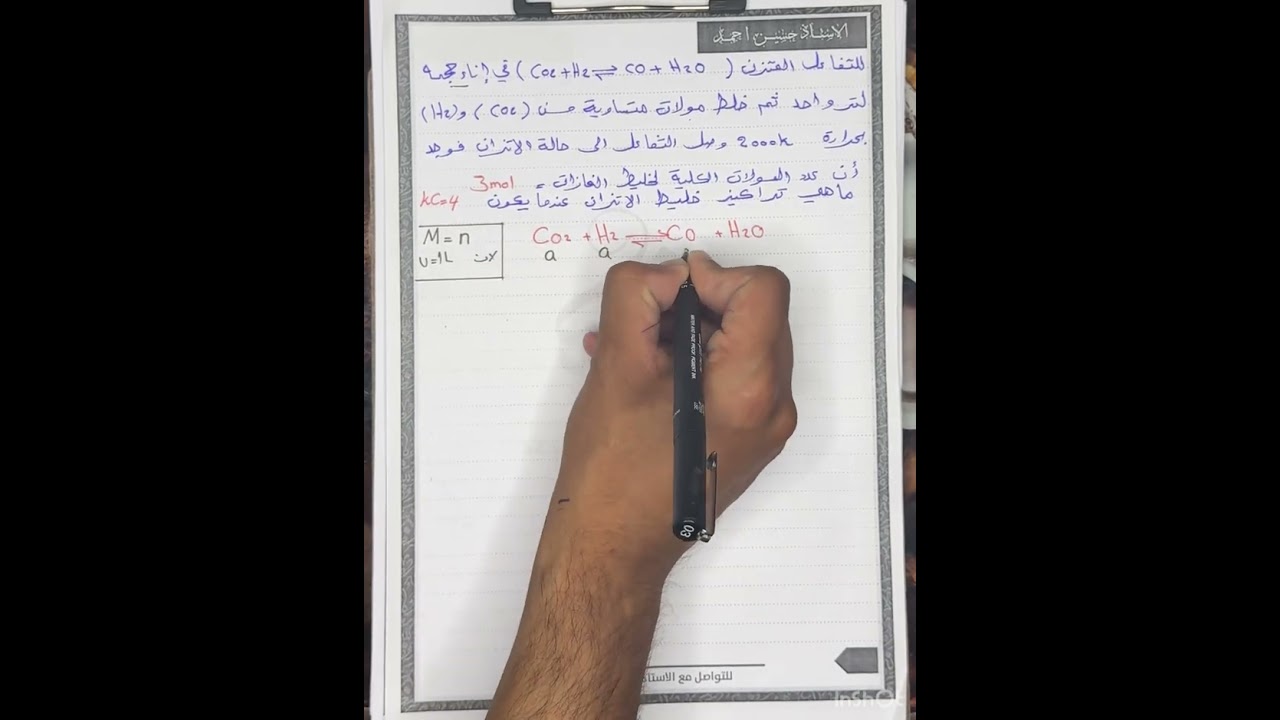 الاستاذ حسين احمد
للتفاعل المتزن ( CO2+H2 ⇌ CO + H2O ) في إناء حجمه
لتر واحد تم خلط مولات متساوية من ( CO2 ) و (H2)
بحرارة 2000k وصل التفاعل الى حالة الاتزان فوجد
أن عدد المولات الكلية لخليط الغازات = 3mol
ما هي تراكيز خليط الاتزان عندما يكون kC=4
CO2 + H2 ⇌ CO + H2O
a a
M = n
لان v=1L
03
للتواصل مع الاستا
InShO